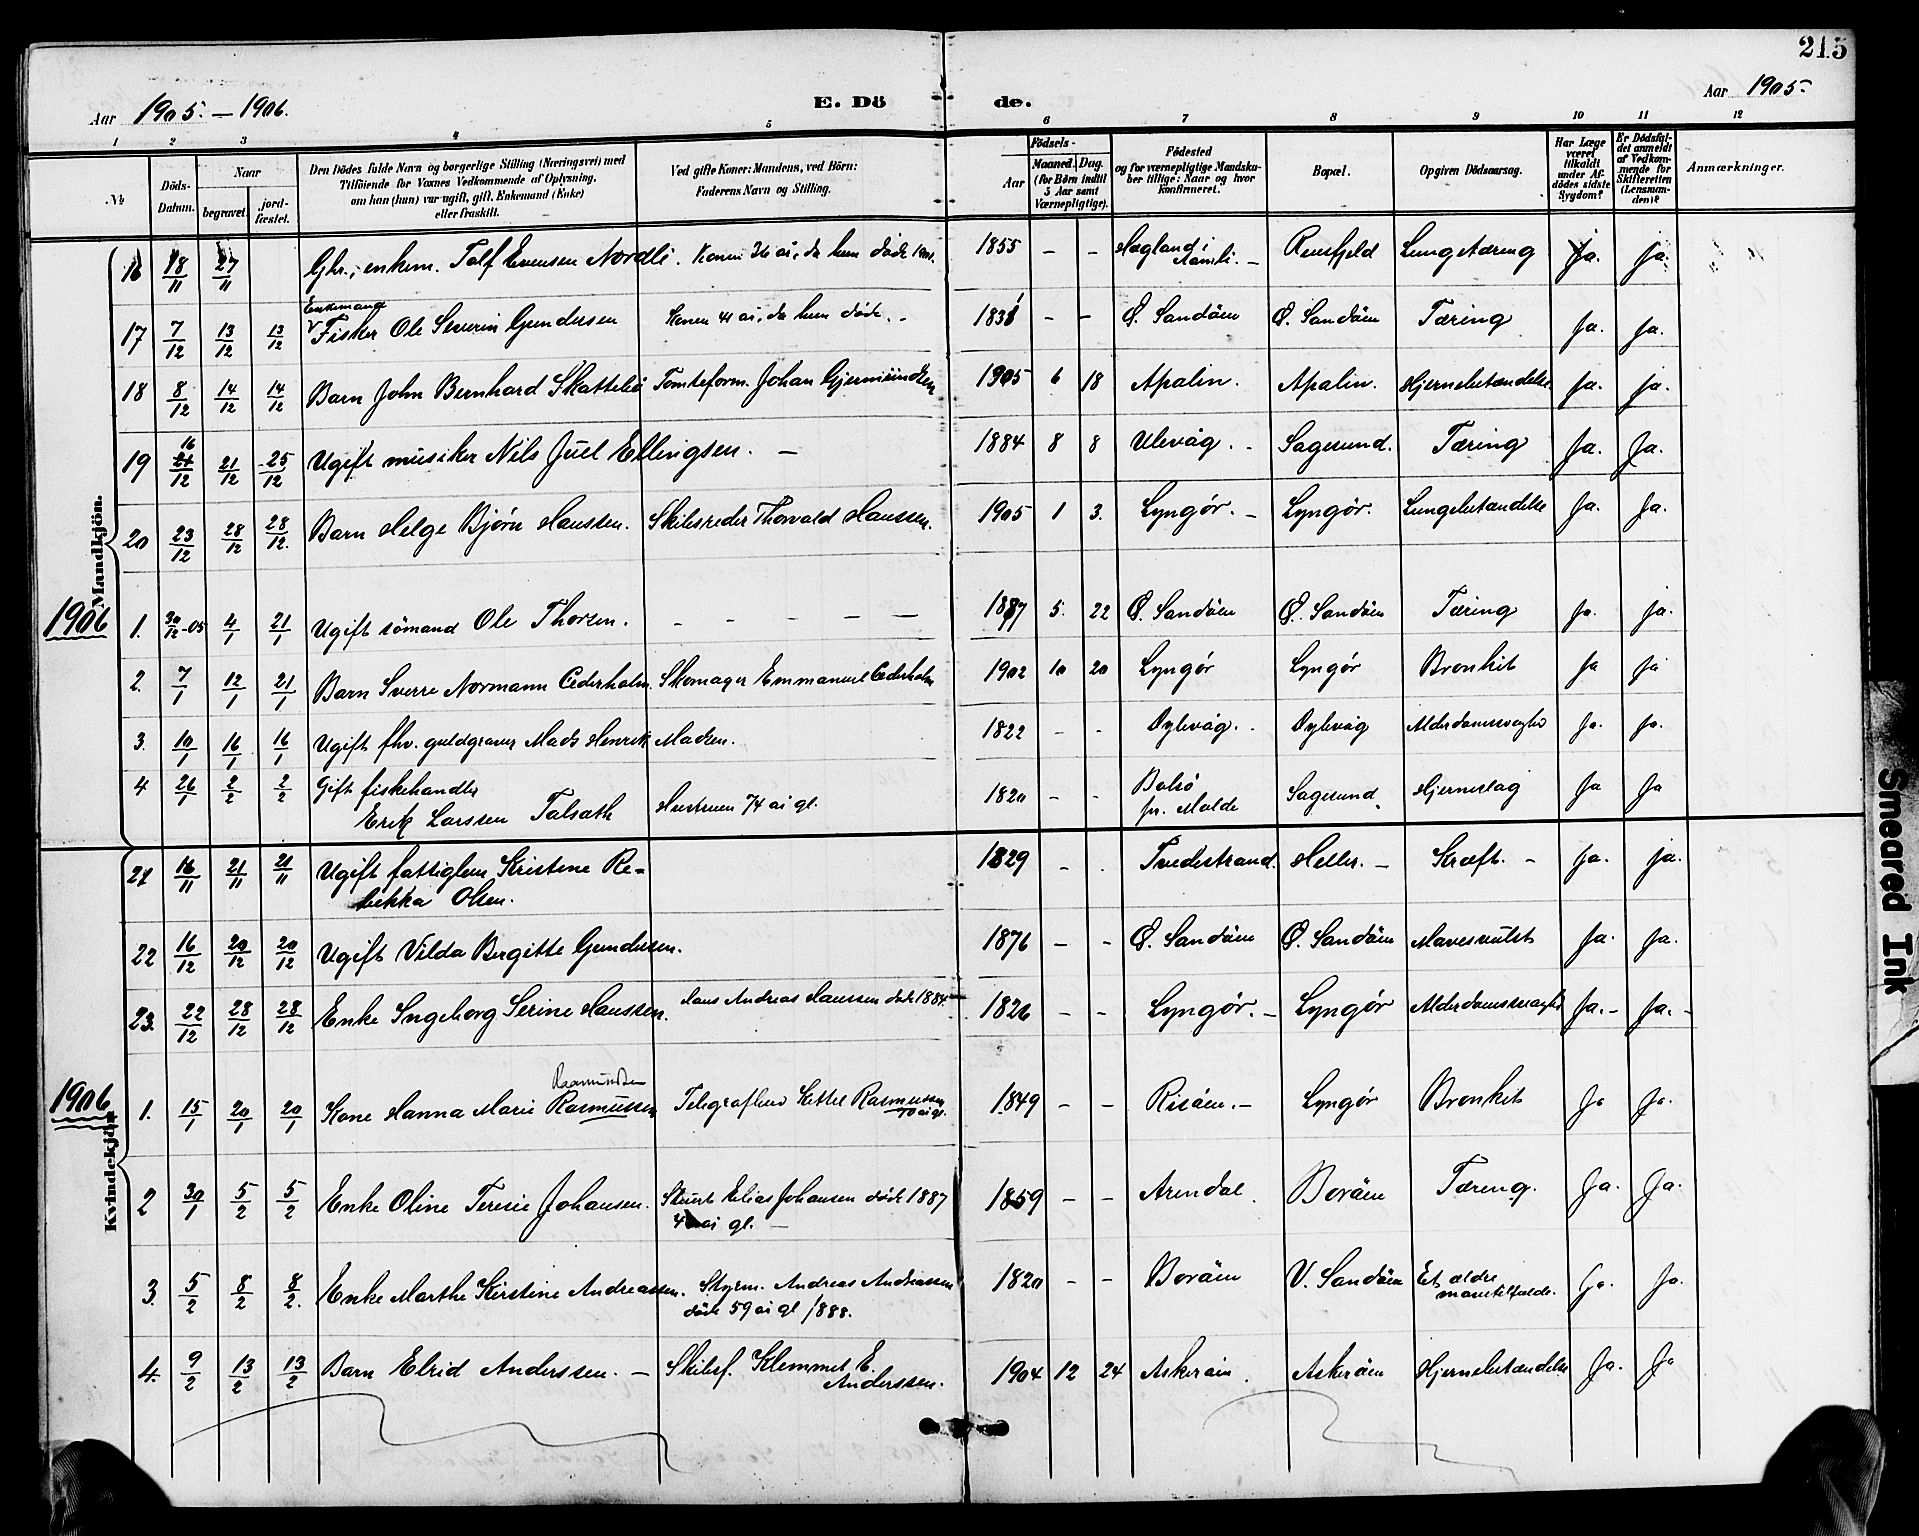 215
Aar 1905. — 1906.
E. Dö de.
Aar 1905.
1 2 3 4 5 6 7 8 9 10 11 12
№
Döds-Datum.
Naar
begravet.
jord-fæstet.
Den Dödes fulde Navn og borgerlige Stilling (Næringsvei) med
Tilföiende for Voxnes Vedkommende af Oplysning,
om han (hun) var ugift, gift, Enkemand (Enke)
eller fraskilt.
Ved gifte Koner: Mandens, ved Börn:
Faderens Navn og Stilling.
Födsels-
Aar
Maaned. Dag.
(for Börn indtil
5 Aar samt
Værnepligtige).
Födested
og for værnepligtige Mandska-
ber tillige: Naar og hvor
konfirmeret.
Bopæl.
Opgiven Dödsaarsag.
Har Læge
været
tilkaldt
under Af-
dödes sidste
Sygdom?
Er Dödsfal-
det anmeldt
af Vedkom-
mende for
Skifteretten
(Lensman-
den)?
Anmærkninger.
Mandkjön.
16 18/11 27/11 Gbr., enkem. Talf Evensen Nordli. Konen 36 år, da hun døde 1901. 1855 – – Hagland i Åmli. – Lungetæring Ja. ja.
Enkemand
17 7/12 13/12 13/12 Fisker Ole Severin Gundersen Konen 41 år, da hun døde. – 1831 – – Ø. Sandöen Ø. Sandöen Tæring ja. ja.
18 8/12 14/12 14/12 Barn John Bernhard Skattebö Tomteform. Johan Gjermundsen 1905 6 18 Apalin. Apalin. Hjernebetændelse ja. ja.
19 16/12 21/12 25/12 Ugift musiker Nils Juel Ellingsen. – 1884 8 8 Ulevåg. – Sagesund. Tæring Ja. Ja.
20 23/12 28/12 28/12. Barn Helge Bjørn Hanssen. Skibsreder Thorvald Hanssen. 1905 1 3. Lyngør. – Lyngør. Lungebetændelse Ja. Ja.
1906
1. 30/12-05 4/1 21/1 Ugift sömand Ole Thorsen. – – – – – 1887 5. 22 Ø. Sandöen Ø. Sandöen Tæring Ja. ja.
2. 7/1 12/1 21/1 Barn Sverre Normann Cederholm. Skomager Emmanuel Cederholm 1902 10 20 Lyngør Lyngør Bronkit Ja ja
3. 10/1 16/1 16/1 Ugift fhv. guldgraver Mads Henrik Madsen. 1822 – – Dybvåg. Dybvåg Alderdomssvaghed Ja. Ja.
4 26/1 2/2 2/2 Gift fiskehandler
Erik Larssen Talsath Hustruen 74 år gl. 1820 – – Bolsö
pr. Molde Sagesund Hjerneslag Ja Ja
Kvindekjön
21 16/11 21/11 21/11 Ugift fattiglem Kristine Re-
bekka Olsen. 1829 – . Tvedestrand. Heller. – Kræft. – Ja. ja.
22 16/12 20/12 20/12 Ugift Vilda Bergitte Gundersen. 1876 – – Ø. Sandöen Ø. Sandöen Mavesvulst Ja. Ja.
23. 22/12 28/12 28/12 Enke Ingeborg Serine Hanssen. Hans Andreas Hanssen død 1884 1826 – – Lyngør. – Lyngør Alderdomssvaghed Ja. – Ja. –
1906
Rasmundsen
1. 15/1 20/1 20/1 Kone Hanna Marie Rasmussen Telegrafbud Kittel Rasmussen
70 år gl. 1849 – – Risöen. – Lyngør Bronkit Ja Ja.
2 30/1 5/2 5/2 Enke Oline Teresie Johansen. Elias Johansen död 1887
år gl. – 1859 – – Arendal. Boröen Tæring. Ja. Ja.
3. 5/2 8/2 8/2. Enke Marthe Kirstine Andreassen. Styrm. Andreas Andreassen
döde 59 år gl. 1888. 1820 – – Boröen V. Sandöen Et ældre
mavetilfælde. Ja. Ja.
4. 9/2 13/2 13/2 Barn Elrid Anderssen. – Skibsf. Klemmet E.
Anderssen. 1904 12 24 Askeröen. Askeröen Hjernebetændelse Ja. Ja
Smeared Ink